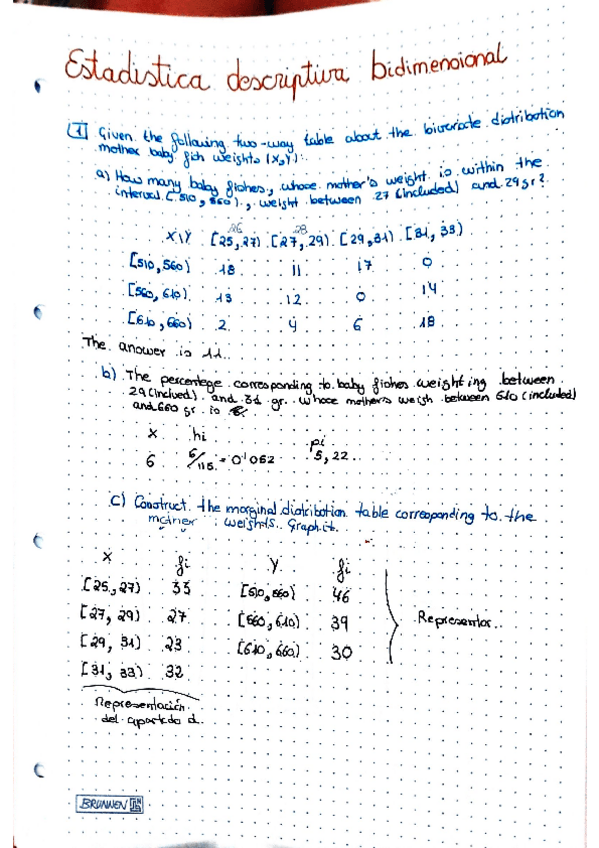 Estadistica descriptiva bidimensional
1 Given the following two-way table about the bivariate distribution
mother baby fish weights (X,Y):
a) How many baby fishes, whose mother's weight is within the
interval [510, 560), weight between 27 (included) and 29 gr?
26 28
X\Y [25,27) [27,29) [29,31) [31,33)
[510,560) 18 11 17 0
[560,610) 13 12 0 14
[610,660) 2 4 6 18
The answer is 11.
b) The percentege corresponding to baby fishes weighting between
29 (inclued) and 31 gr. whose mother's weigh between 610 (included)
and 660 gr. is
x hi pi
6 6/115 = 0'052 5,22
c) Construct the marginal distribution table corresponding to the
mother weights. Graph it.
X fi Y fi
[25,27) 33 [510,560) 46
[27,29) 27 [560,610) 39
[29,31) 23 [610,660) 30
[31,33) 32
Representar.
Representación
del apartado d.
BRUNNEN